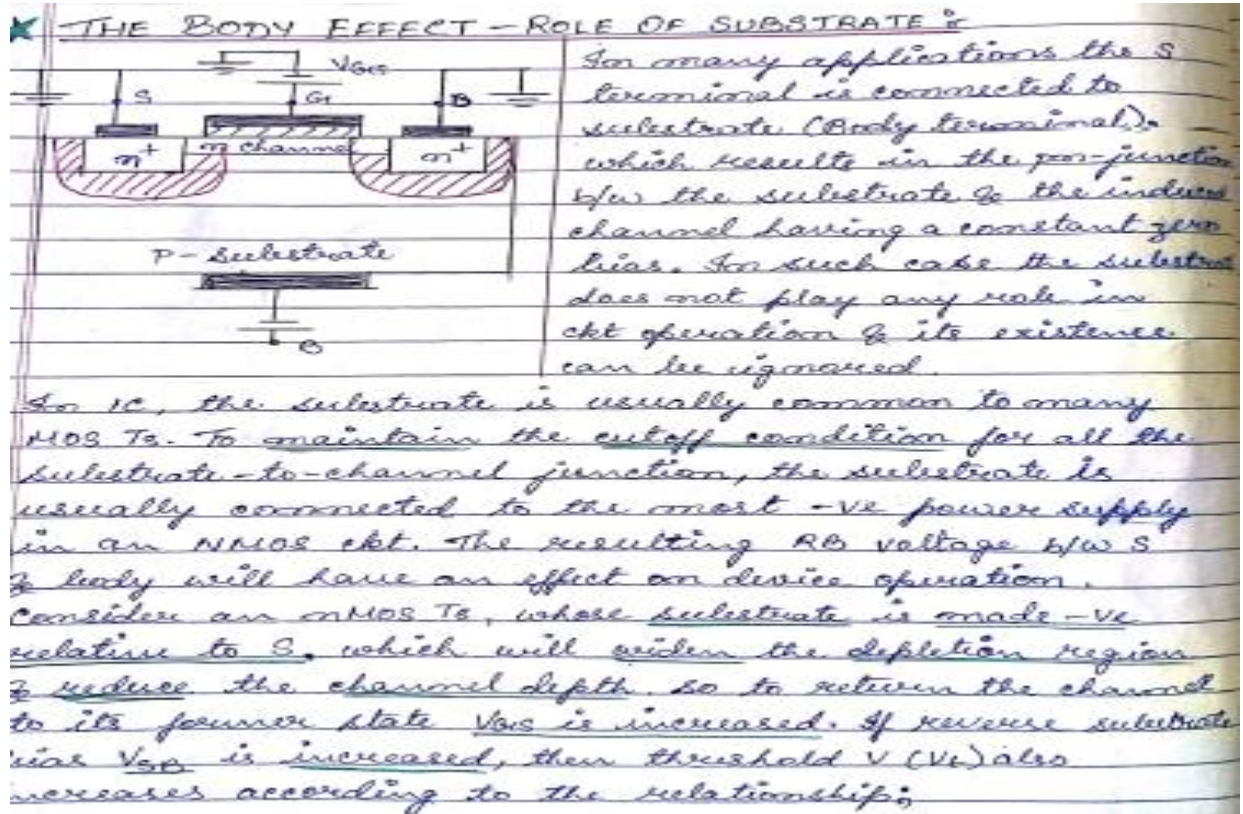 ★ THE BODY EFFECT - ROLE OF SUBSTRATE :
VGS
S
G
B
n+
n channel
n+
P- substrate
B
In many applications the S
terminal is connected to
substrate (Body terminal).
which results in the pn-junction
b/w the substrate & the induced
channel having a constant zero
bias. In such case the substrate
does not play any role in
ckt operation & its existence
can be ignored.
In IC, the substrate is usually common to many
MOS Ts. To maintain the cutoff condition for all the
substrate-to-channel junction, the substrate is
usually connected to the most -ve power supply
in an NMOS ckt. The resulting RB voltage b/w S
& body will have an effect on device operation.
Consider an nMOS Ts, whose substrate is made -ve
relative to S. which will widen the depletion region
& reduce the channel depth. So to return the channel
to its former state VGS is increased. If reverse substrate
bias VSB is increased, then threshold V (Vt) also
increases according to the relationship: